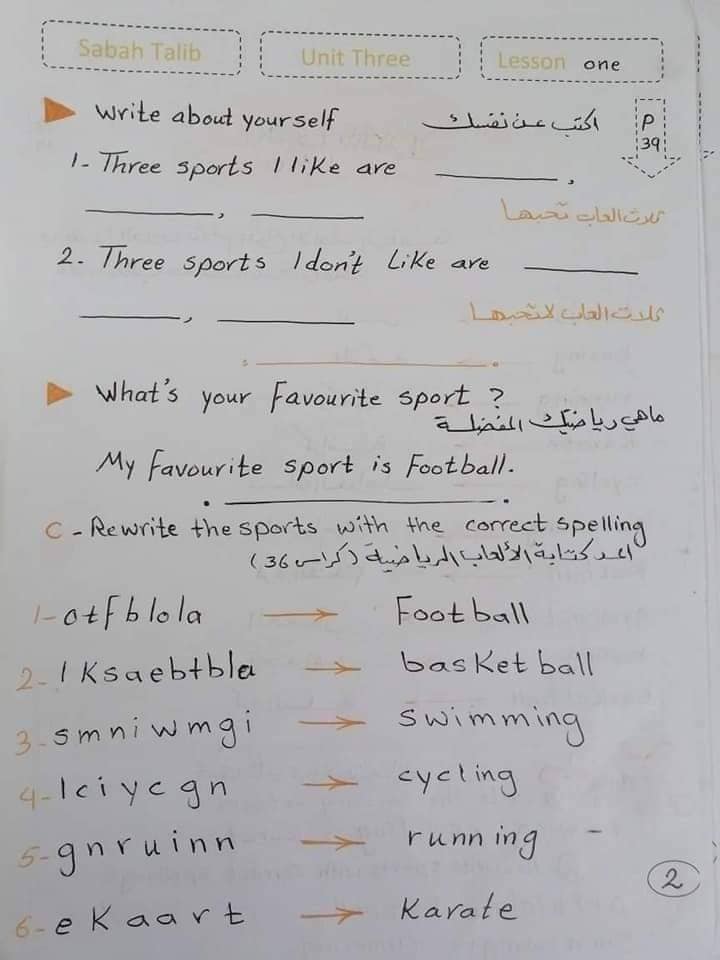 Sabah Talib Unit Three Lesson one
Write about yourself اكتب عن نفسك P 39
1- Three sports I like are ________,
________, ________ ثلاث العاب تحبها
2. Three sports I don't like are ________
________, ________ ثلاث العاب لا تحبها
What's your Favourite sport ?
ماهي رياضتك المفضلة
My Favourite sport is Football.
C - Rewrite the sports with the correct spelling
اعد كتابة الألعاب الرياضية (كراس 36)
1- otfblola → Football
2- lksaebtbla → basketball
3- smniwmgi → swimming
4- lciycgn → cycling
5- gnruinn → running -
6- ekaart → Karate
2